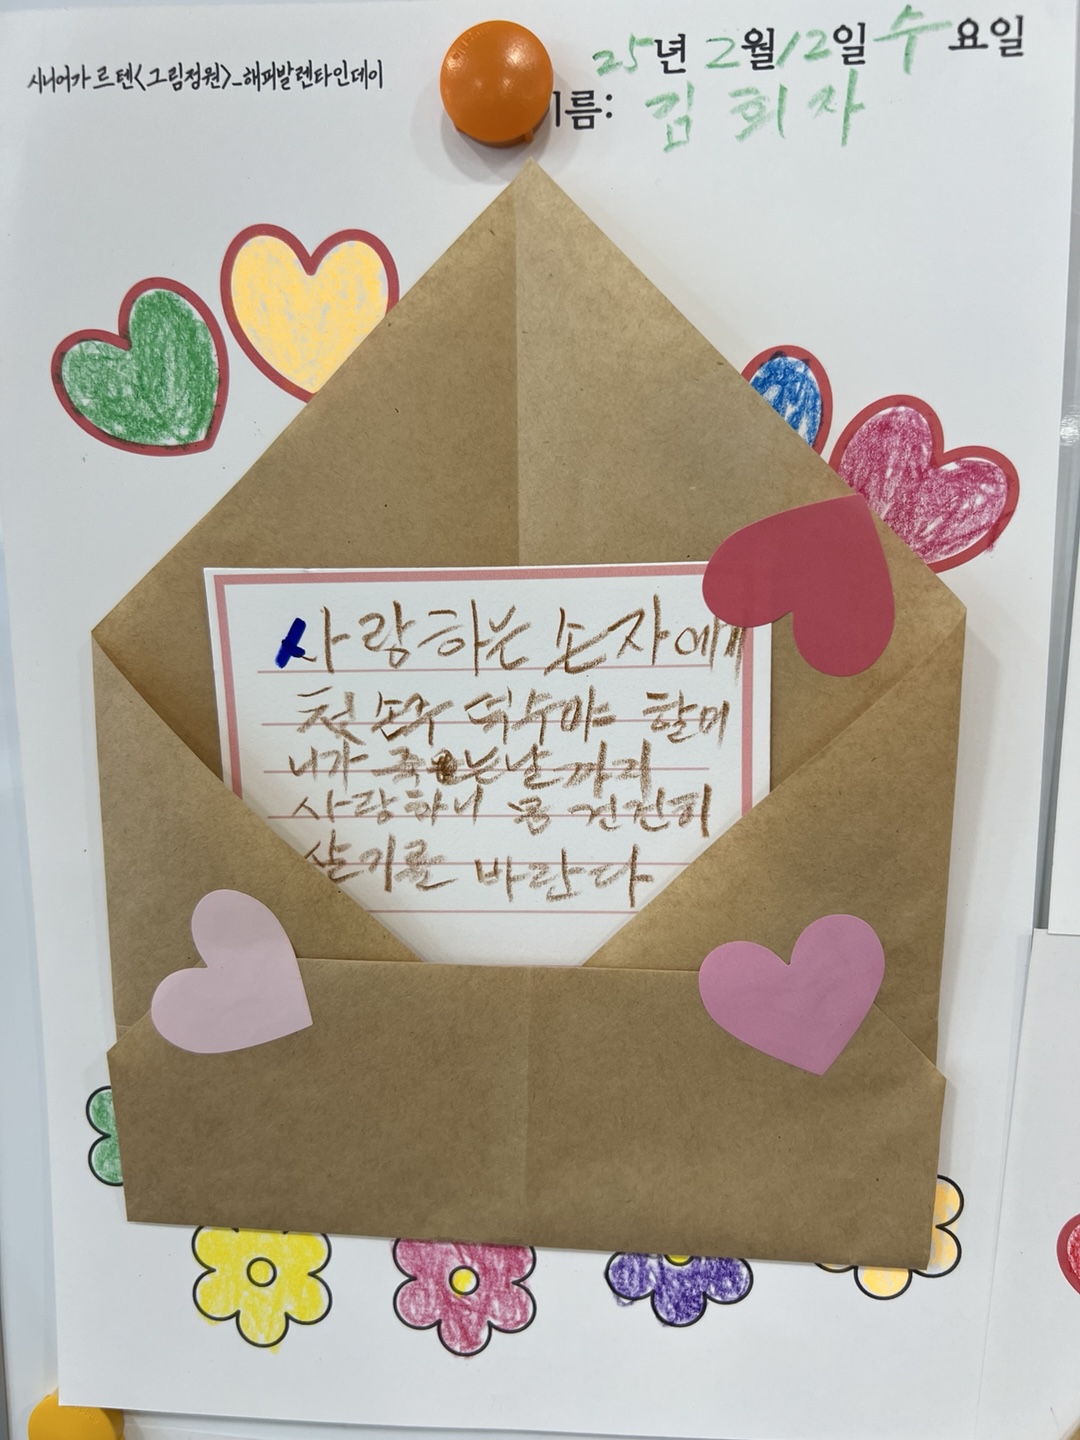 시니어가르텐<그림정원>_해피발렌타인데이
25년 2월 12일 수요일
이름: 김 회 자
사랑하는 손자에게
첫 손주 여수야 할머
니가 죽는날 까지
사랑하니 몸 건건히
살기를 바란다